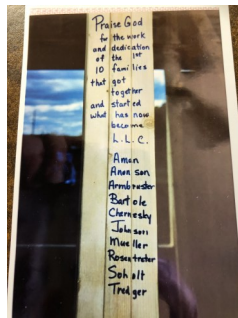 Praise God
for the work
and dedication
of the 1st
10 families
that got
together
and started
what has now
become
L.L.C.
Amen
Anenson
Armbruster
Bartole
Chernesky
Johnson
Mueller
Rosentreter
Scholt
Tredger